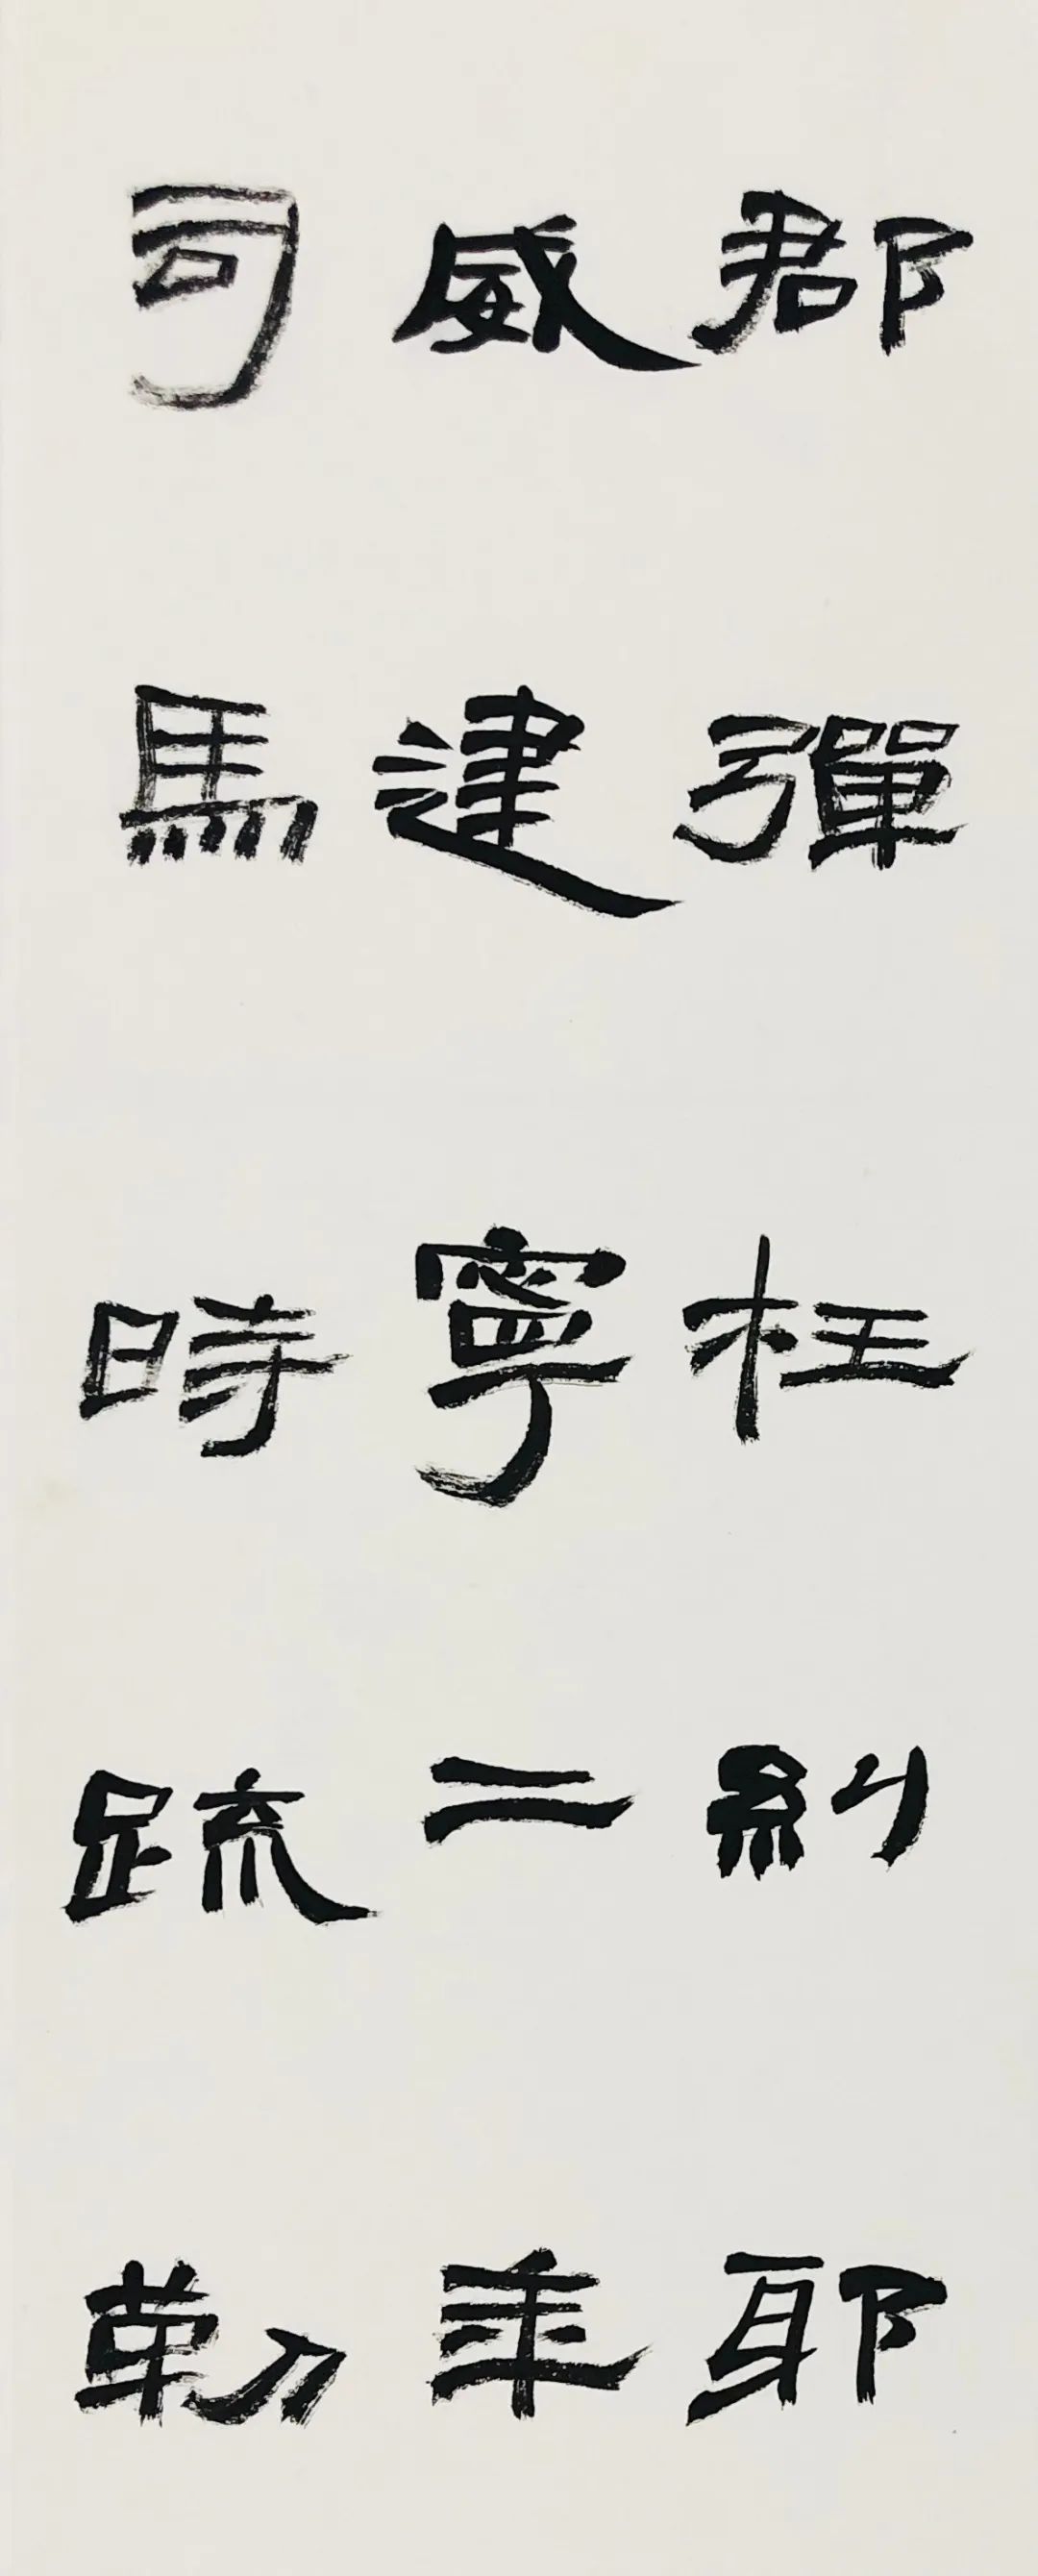 郡彈枉糾邪
威建寧二年
司馬時疏勒